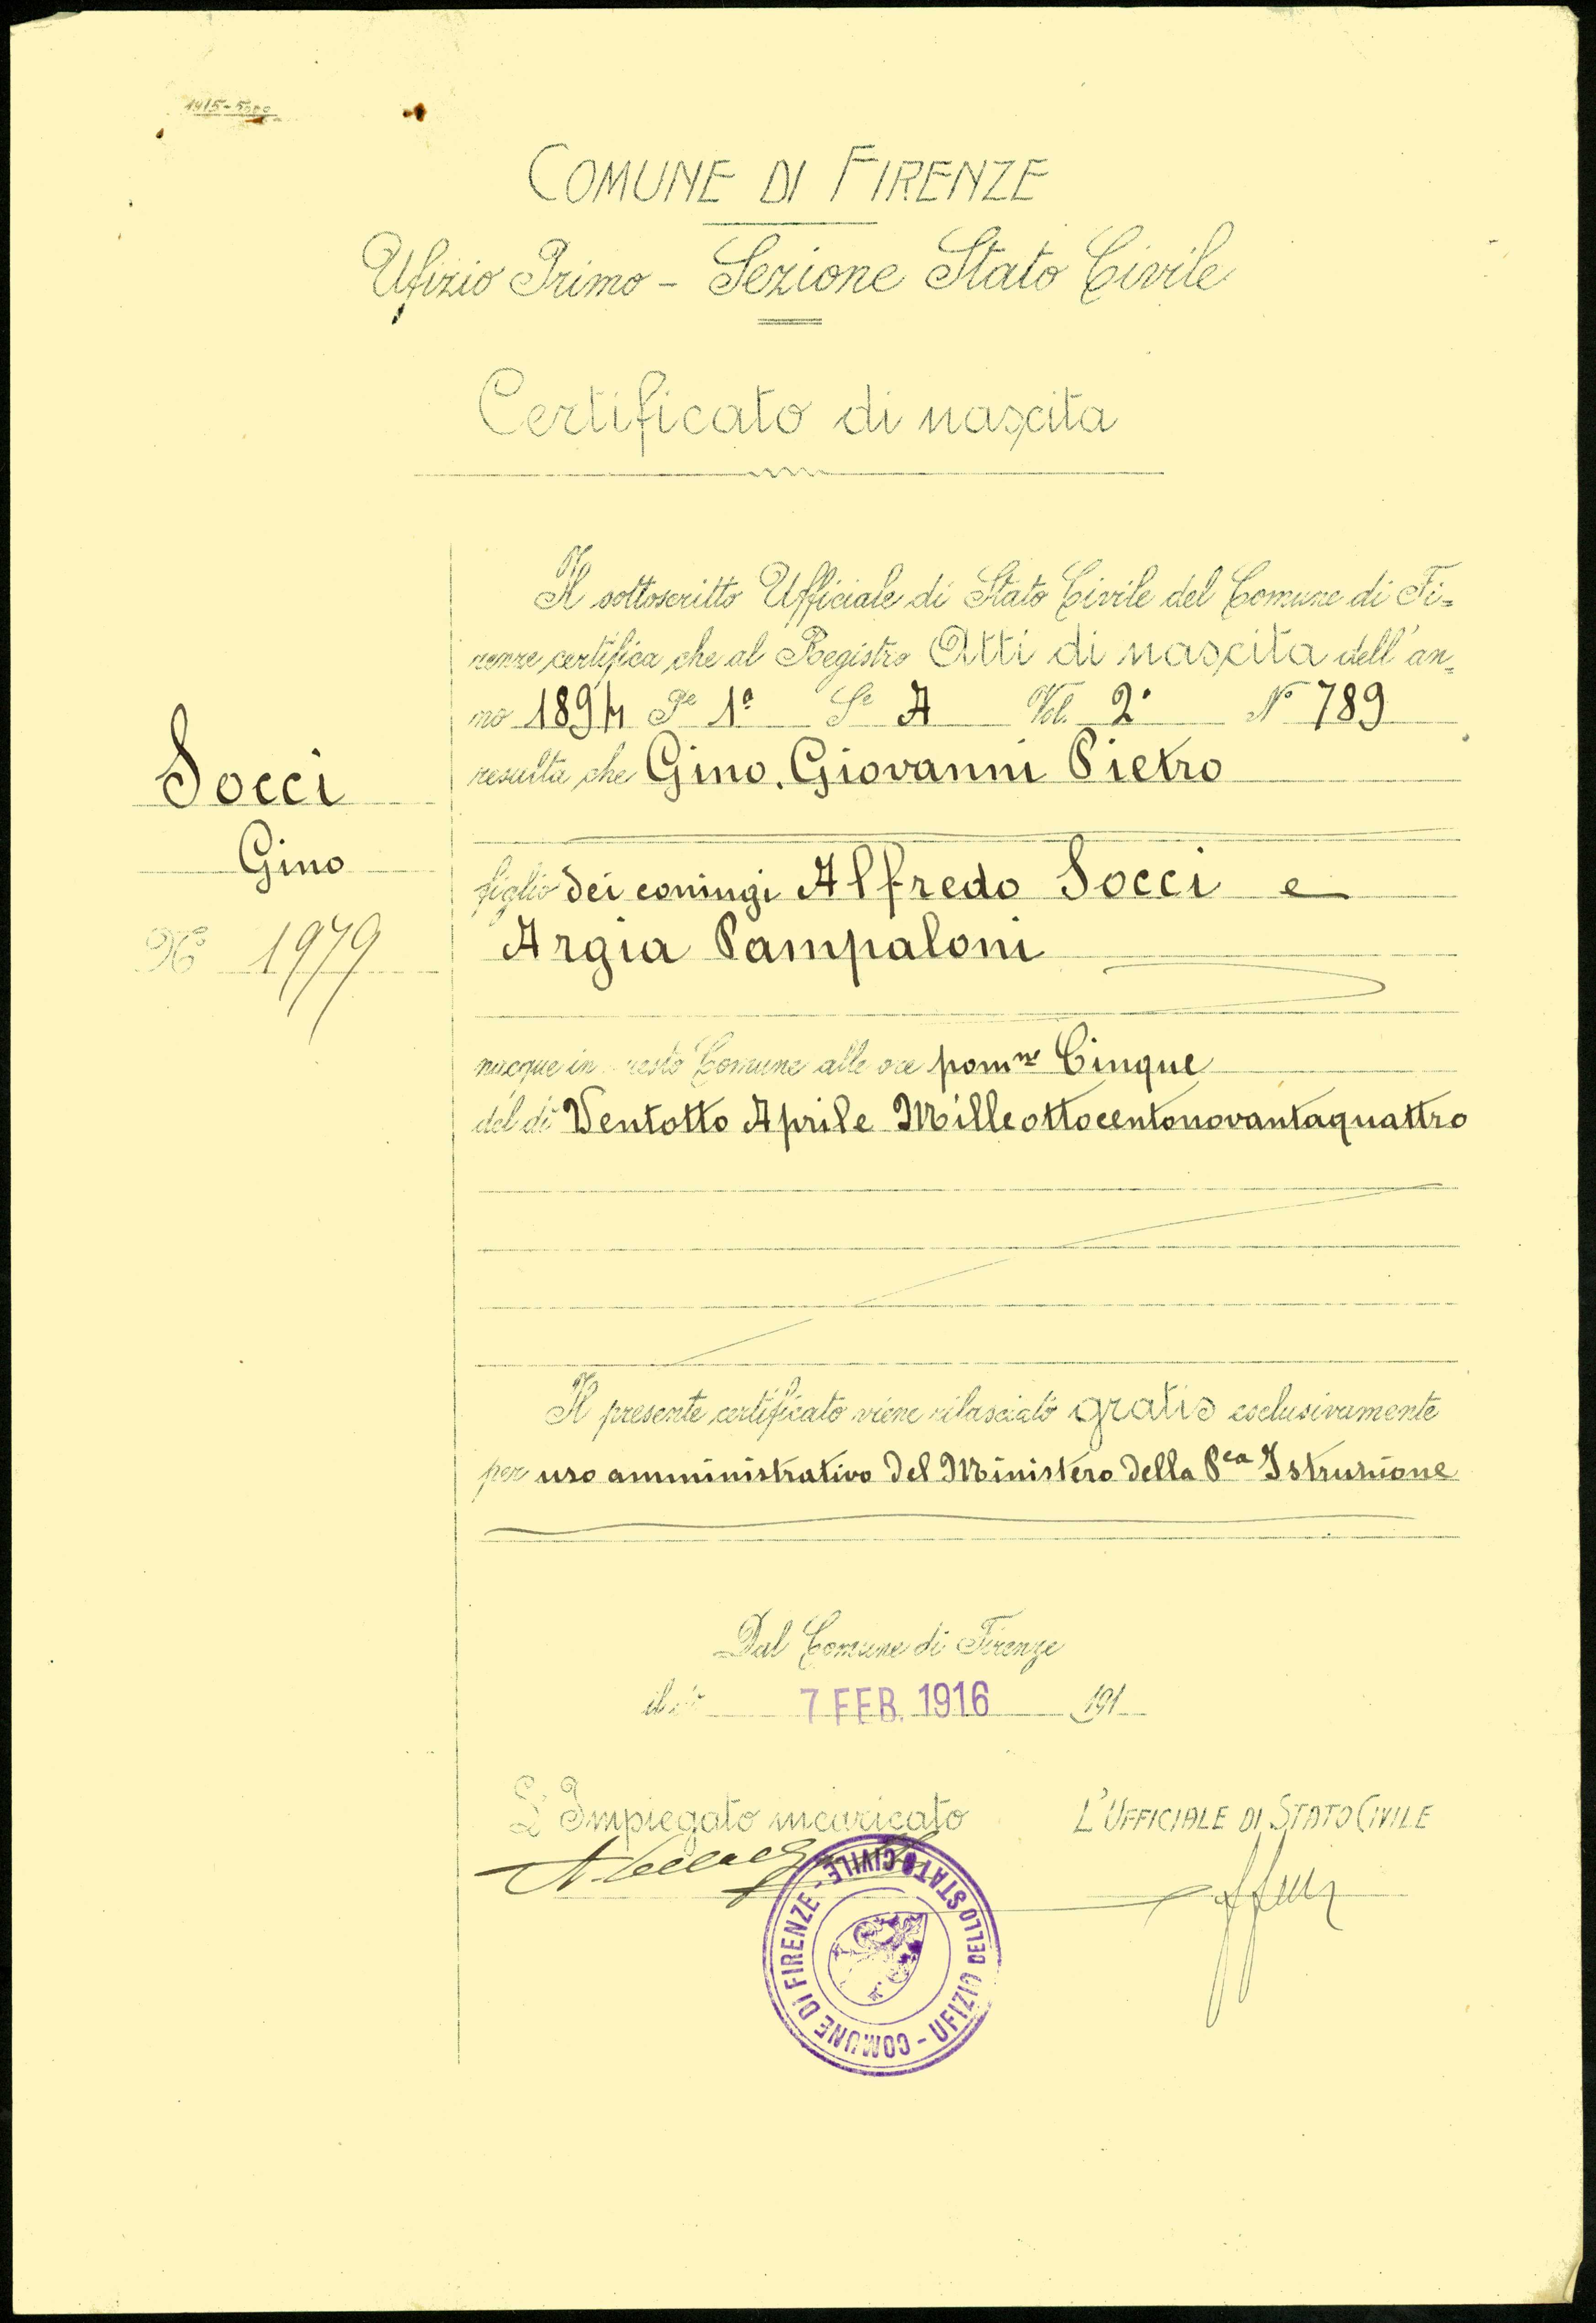 1915-5000
COMUNE DI FIRENZE
Ufizio Primo - Sezione Stato Civile
Certificato di nascita
Socci
Gino
N° 1979
Il sottoscritto Ufficiale di Stato Civile del Comune di Fi=
renze certifica che al Registro Atti di nascita dell'an=
no 1894 Pe 1a Se A Vol. 2° N° 789
resulta che Gino, Giovanni Pietro
figlio dei coniugi Alfredo Socci e
Argia Pampaloni
nacque in questo Comune alle ore pomne Cinque
del dì Ventotto Aprile Milleottocentonovantaquattro
Il presente certificato viene rilasciato gratis esclusivamente
per uso amministrativo del Ministero della Pca Istruzione
Dal Comune di Firenze
il dì 7 FEB. 1916 191
L'Impiegato incaricato
L'UFFICIALE DI STATO CIVILE
COMUNE DI FIRENZE - UFIZIO DELLO STATO CIVILE -